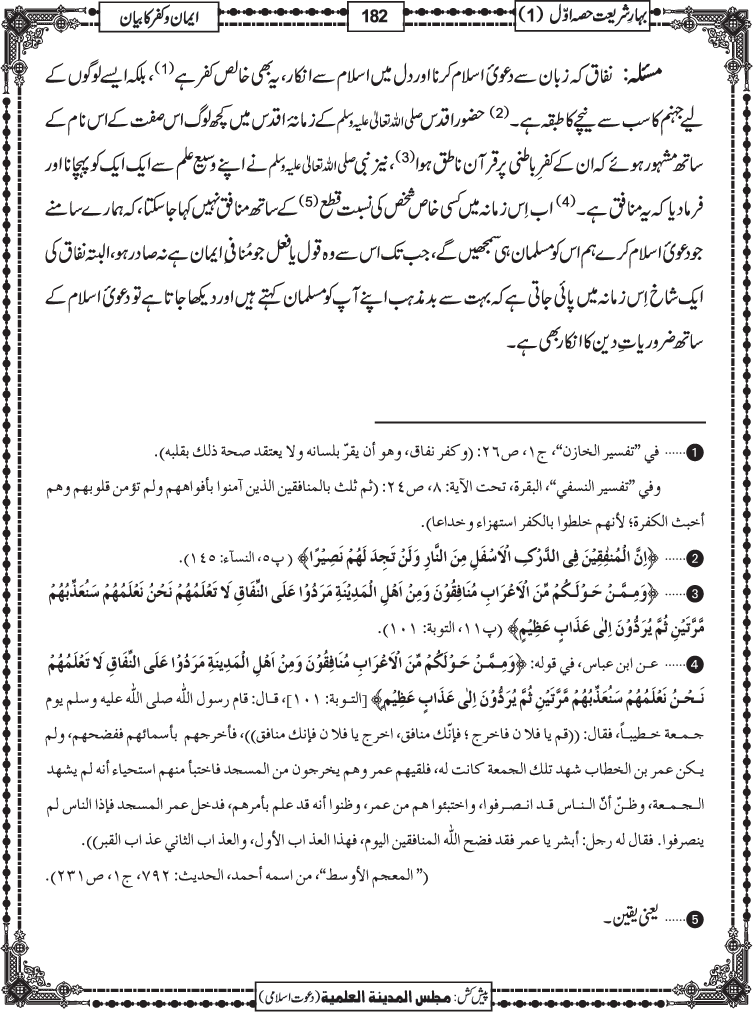 بہارِ شریعت حصہ اوّل (1)
182
ایمان و کفر کا بیان
مسئلہ: نفاق کہ زبان سے دعویٔ اسلام کرنا اور دل میں اسلام سے انکار، یہ بھی خالص کفر ہے (1)، بلکہ ایسے لوگوں کے
لیے جہنم کا سب سے نیچے کا طبقہ ہے۔(2) حضور اقدس صلی اللہ تعالیٰ علیہ وسلم کے زمانۂ اقدس میں کچھ لوگ اس صفت کے اس نام کے
ساتھ مشہور ہوئے کہ ان کے کفرِ باطنی پر قرآن ناطق ہوا(3)، نیز نبی صلی اللہ تعالیٰ علیہ وسلم نے اپنے وسیع علم سے ایک ایک کو پہچانا اور
فرمادیا کہ یہ منافق ہے۔(4) اب اِس زمانہ میں کسی خاص شخص کی نسبت قطع (5) کے ساتھ منافق نہیں کہا جاسکتا، کہ ہمارے سامنے
جو دعویٔ اسلام کرے ہم اس کو مسلمان ہی سمجھیں گے، جب تک اس سے وہ قول یا فعل جو مُنافیٔ ایمان ہے نہ صادر ہو، البتہ نفاق کی
ایک شاخ اِس زمانہ میں پائی جاتی ہے کہ بہت سے بدمذہب اپنے آپ کو مسلمان کہتے ہیں اور دیکھا جاتا ہے تو دعویٔ اسلام کے
ساتھ ضروریاتِ دین کا انکار بھی ہے۔
1...... في ”تفسير الخازن“، ج١، ص٢٦: (وكفر نفاق، وهو أن يقرّ بلسانه ولا يعتقد صحة ذلك بقلبه).
وفي ”تفسير النسفي“، البقرة، تحت الآية: ٨، ص٢٤: (ثم ثلث بالمنافقين الذين آمنوا بأفواههم ولم تؤمن قلوبهم وهم
أخبث الكفرة؛ لأنهم خلطوا بالكفر استهزاء وخداعا).
2...... ﴿اِنَّ الْمُنٰفِقِيْنَ فِى الدَّرْكِ الْاَسْفَلِ مِنَ النَّارِ وَلَنْ تَجِدَ لَهُمْ نَصِيْرًا﴾ (پ٥، النسآء: ١٤٥).
3...... ﴿وَمِمَّنْ حَوْلَكُمْ مِّنَ الْاَعْرَابِ مُنَافِقُوْنَ وَمِنْ اَهْلِ الْمَدِيْنَةِ مَرَدُوْا عَلَى النِّفَاقِ لَا تَعْلَمُهُمْ نَحْنُ نَعْلَمُهُمْ سَنُعَذِّبُهُمْ
مَّرَّتَيْنِ ثُمَّ يُرَدُّوْنَ اِلٰى عَذَابٍ عَظِيْمٍ﴾ (پ١١، التوبة: ١٠١).
4...... عن ابن عباس، في قوله: ﴿وَمِمَّنْ حَوْلَكُمْ مِّنَ الْاَعْرَابِ مُنَافِقُوْنَ وَمِنْ اَهْلِ الْمَدِيْنَةِ مَرَدُوْا عَلَى النِّفَاقِ لَا تَعْلَمُهُمْ
نَحْنُ نَعْلَمُهُمْ سَنُعَذِّبُهُمْ مَّرَّتَيْنِ ثُمَّ يُرَدُّوْنَ اِلٰى عَذَابٍ عَظِيْمٍ﴾ [التوبة: ١٠١]، قال: قام رسول الله صلى الله عليه وسلم يوم
جمعة خطيباً، فقال: ((قم يا فلان فاخرج؛ فإنّك منافق، اخرج يا فلان فإنك منافق))، فأخرجهم بأسمائهم ففضحهم، ولم
يكن عمر بن الخطاب شهد تلك الجمعة كانت له، فلقيهم عمر وهم يخرجون من المسجد فاختبأ منهم استحياء أنه لم يشهد
الجمعة، وظنّ أنّ الناس قد انصرفوا، واختبئوا هم من عمر، وظنوا أنه قد علم بأمرهم، فدخل عمر المسجد فإذا الناس لم
ينصرفوا. فقال له رجل: أبشر يا عمر فقد فضح الله المنافقين اليوم، فهذا العذاب الأول، والعذاب الثاني عذاب القبر)).
(”المعجم الأوسط“، من اسمه أحمد، الحديث: ٧٩٢، ج١، ص٢٣١).
5...... یعنی یقین۔
پیش کش: مجلس المدينة العلمية (دعوت اسلامی)